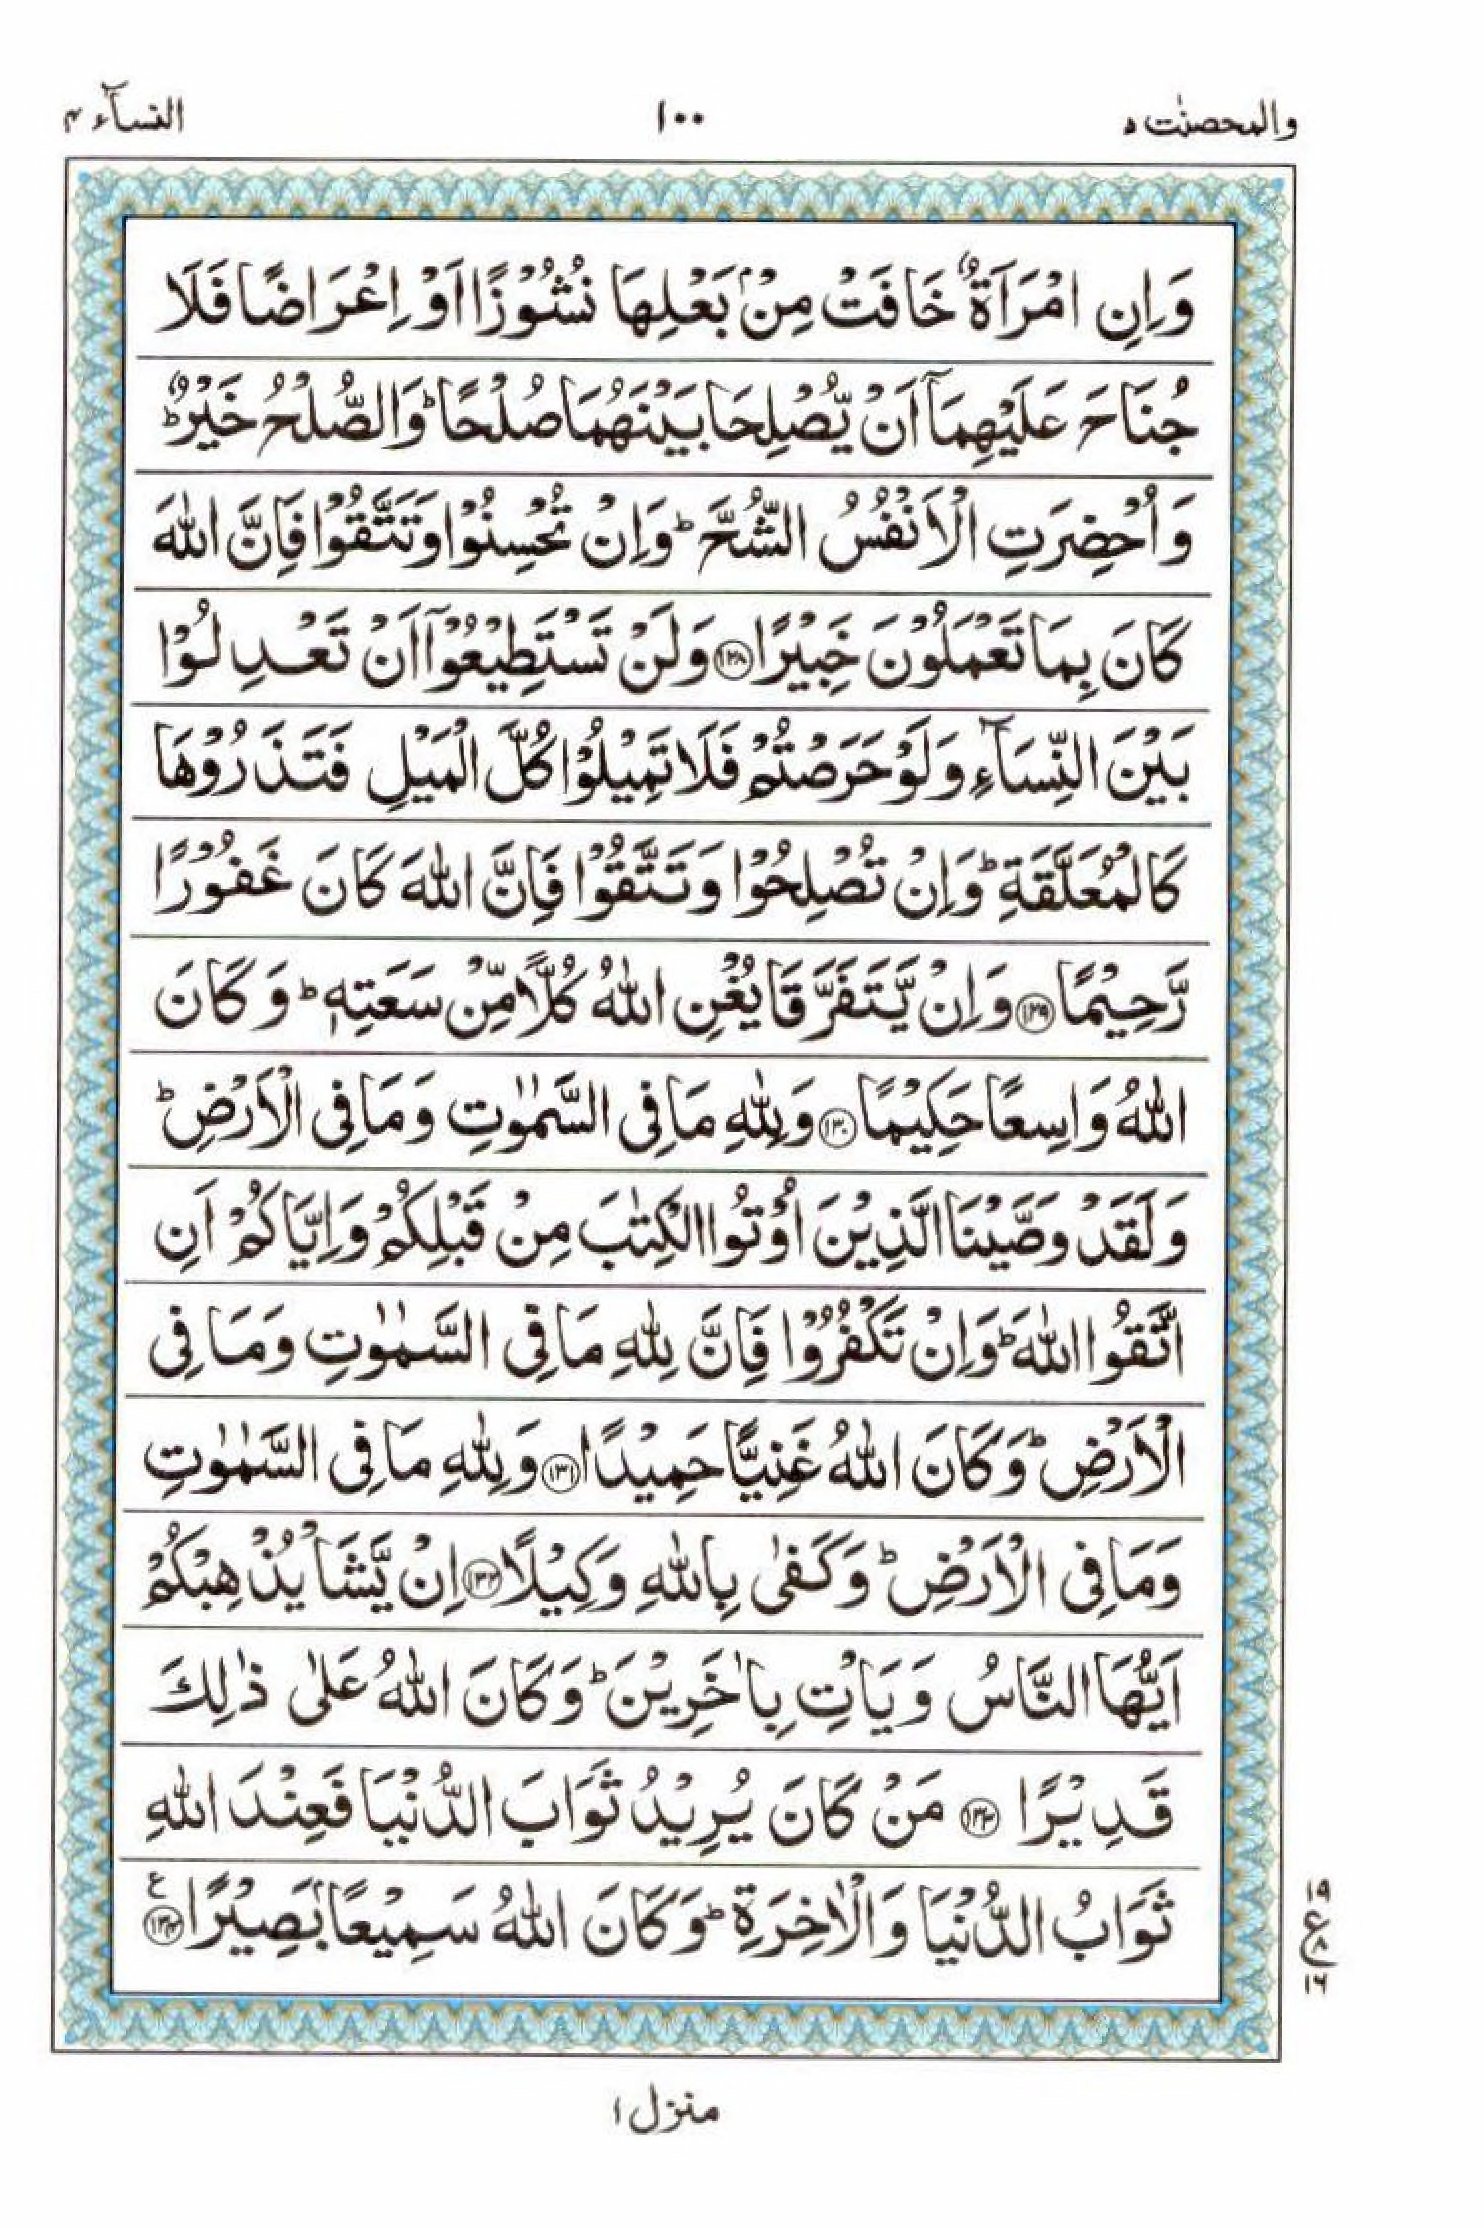 والمحصنٰت ٥ ١٠٠ النسآء ٤
وَاِنِ امْرَاَةٌ خَافَتْ مِنْۢ بَعْلِهَا نُشُوْزًا اَوْ اِعْرَاضًا فَلَا
جُنَاحَ عَلَيْهِمَآ اَنْ يُّصْلِحَا بَيْنَهُمَا صُلْحًا ؕ وَالصُّلْحُ خَيْرٌ ؕ
وَاُحْضِرَتِ الْاَنْفُسُ الشُّحَّ ؕ وَاِنْ تُحْسِنُوْا وَتَتَّقُوْا فَاِنَّ اللّٰهَ
كَانَ بِمَا تَعْمَلُوْنَ خَبِيْرًا ﴿١٢٨﴾ وَلَنْ تَسْتَطِيْعُوْٓا اَنْ تَعْدِلُوْا
بَيْنَ النِّسَآءِ وَلَوْ حَرَصْتُمْ فَلَا تَمِيْلُوْا كُلَّ الْمَيْلِ فَتَذَرُوْهَا
كَالْمُعَلَّقَةِ ؕ وَاِنْ تُصْلِحُوْا وَتَتَّقُوْا فَاِنَّ اللّٰهَ كَانَ غَفُوْرًا
رَّحِيْمًا ﴿١٢٩﴾ وَاِنْ يَّتَفَرَّقَا يُغْنِ اللّٰهُ كُلًّا مِّنْ سَعَتِهٖ ؕ وَكَانَ
اللّٰهُ وَاسِعًا حَكِيْمًا ﴿١٣٠﴾ وَلِلّٰهِ مَا فِى السَّمٰوٰتِ وَمَا فِى الْاَرْضِ ؕ
وَلَقَدْ وَصَّيْنَا الَّذِيْنَ اُوْتُوا الْكِتٰبَ مِنْ قَبْلِكُمْ وَاِيَّاكُمْ اَنِ
اتَّقُوا اللّٰهَ ؕ وَاِنْ تَكْفُرُوْا فَاِنَّ لِلّٰهِ مَا فِى السَّمٰوٰتِ وَمَا فِى
الْاَرْضِ ؕ وَكَانَ اللّٰهُ غَنِيًّا حَمِيْدًا ﴿١٣١﴾ وَلِلّٰهِ مَا فِى السَّمٰوٰتِ
وَمَا فِى الْاَرْضِ ؕ وَكَفٰى بِاللّٰهِ وَكِيْلًا ﴿١٣٢﴾ اِنْ يَّشَاْ يُذْهِبْكُمْ
اَيُّهَا النَّاسُ وَيَاْتِ بِاٰخَرِيْنَ ؕ وَكَانَ اللّٰهُ عَلٰى ذٰلِكَ
قَدِيْرًا ﴿١٣٣﴾ مَنْ كَانَ يُرِيْدُ ثَوَابَ الدُّنْيَا فَعِنْدَ اللّٰهِ
ثَوَابُ الدُّنْيَا وَالْاٰخِرَةِ ؕ وَكَانَ اللّٰهُ سَمِيْعًۢا بَصِيْرًا ﴿١٣٤﴾ ع
١٩
ع ٨
١٦
منزل ١